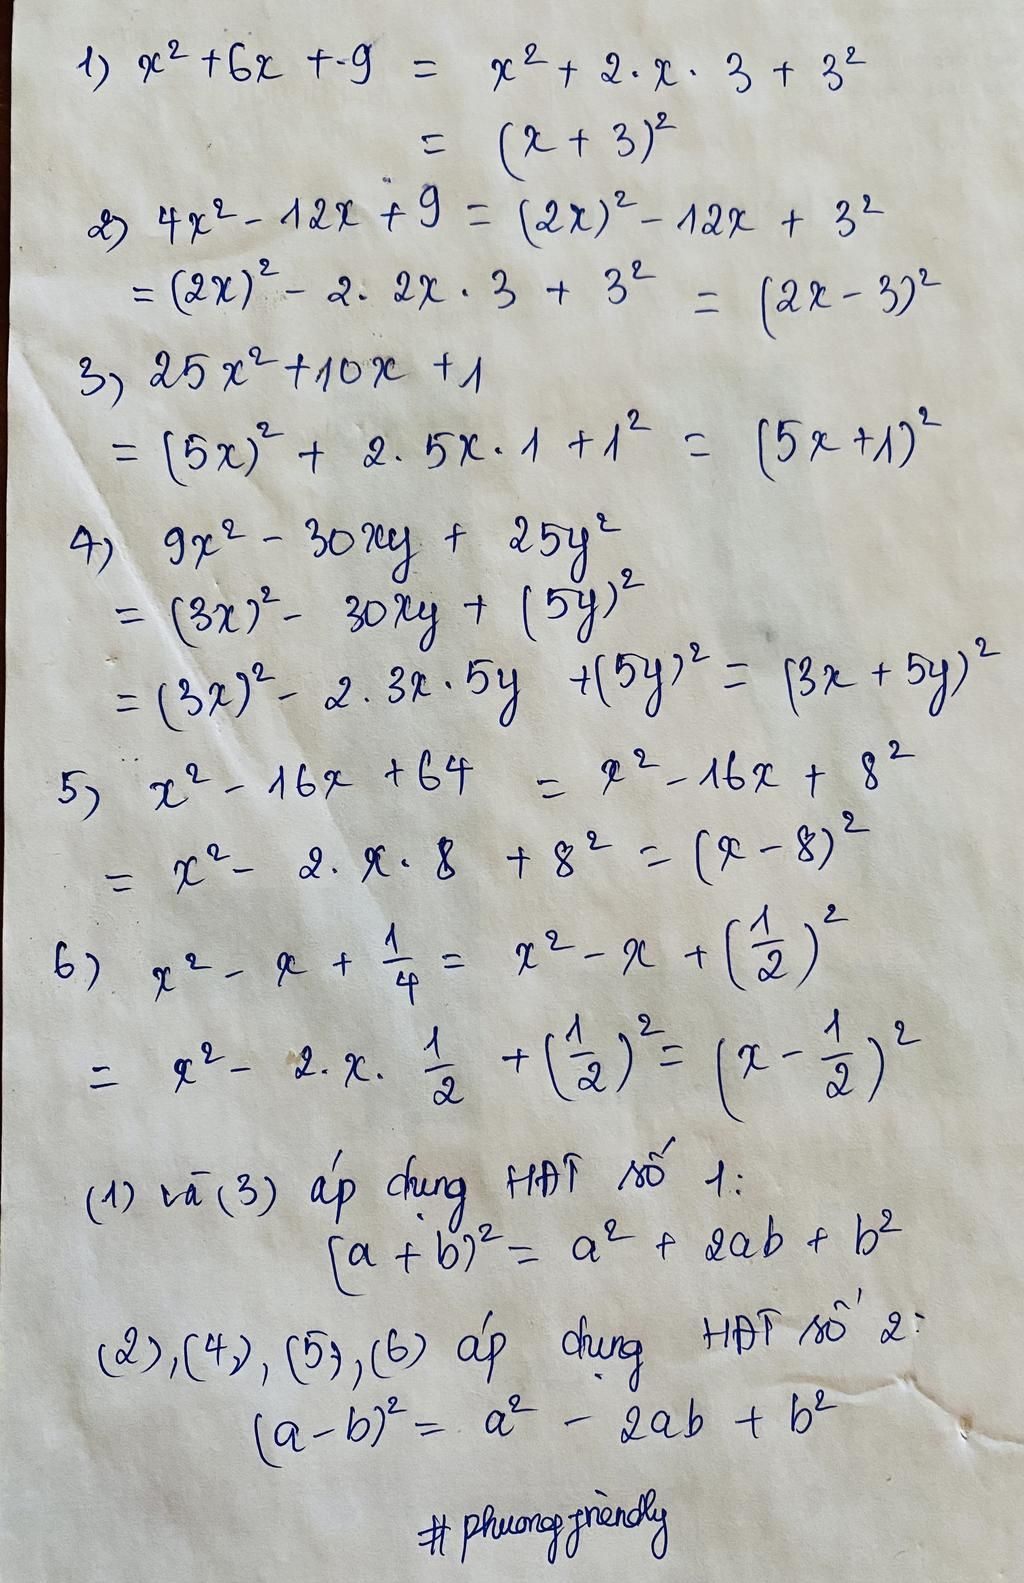 1) x² + 6x + 9 = x² + 2.x. 3 + 3²
= (x + 3)²
2) 4x² - 12x + 9 = (2x)² - 12x + 3²
= (2x)² - 2. 2x . 3 + 3² = (2x - 3)²
3) 25x² + 10x + 1
= (5x)² + 2. 5x. 1 + 1² = (5x + 1)²
4) 9x² - 30xy + 25y²
= (3x)² - 30xy + (5y)²
= (3x)² - 2. 3x . 5y + (5y)² = (3x + 5y)²
5) x² - 16x + 64 = x² - 16x + 8²
= x² - 2. x. 8 + 8² = (x - 8)²
6) x² - x + 1/4 = x² - x + (1/2)²
= x² - 2.x. 1/2 + (1/2)² = (x - 1/2)²
(1) và (3) áp dụng HĐT số 1:
(a + b)² = a² + 2ab + b²
(2), (4), (5), (6) áp dụng HĐT số 2:
(a - b)² = a² - 2ab + b²
# phuongfriendly